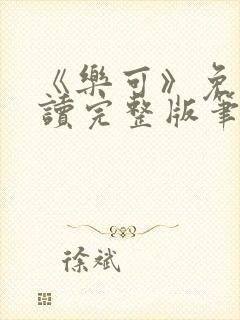 《樂可》免
讀完整版筆
徐斌